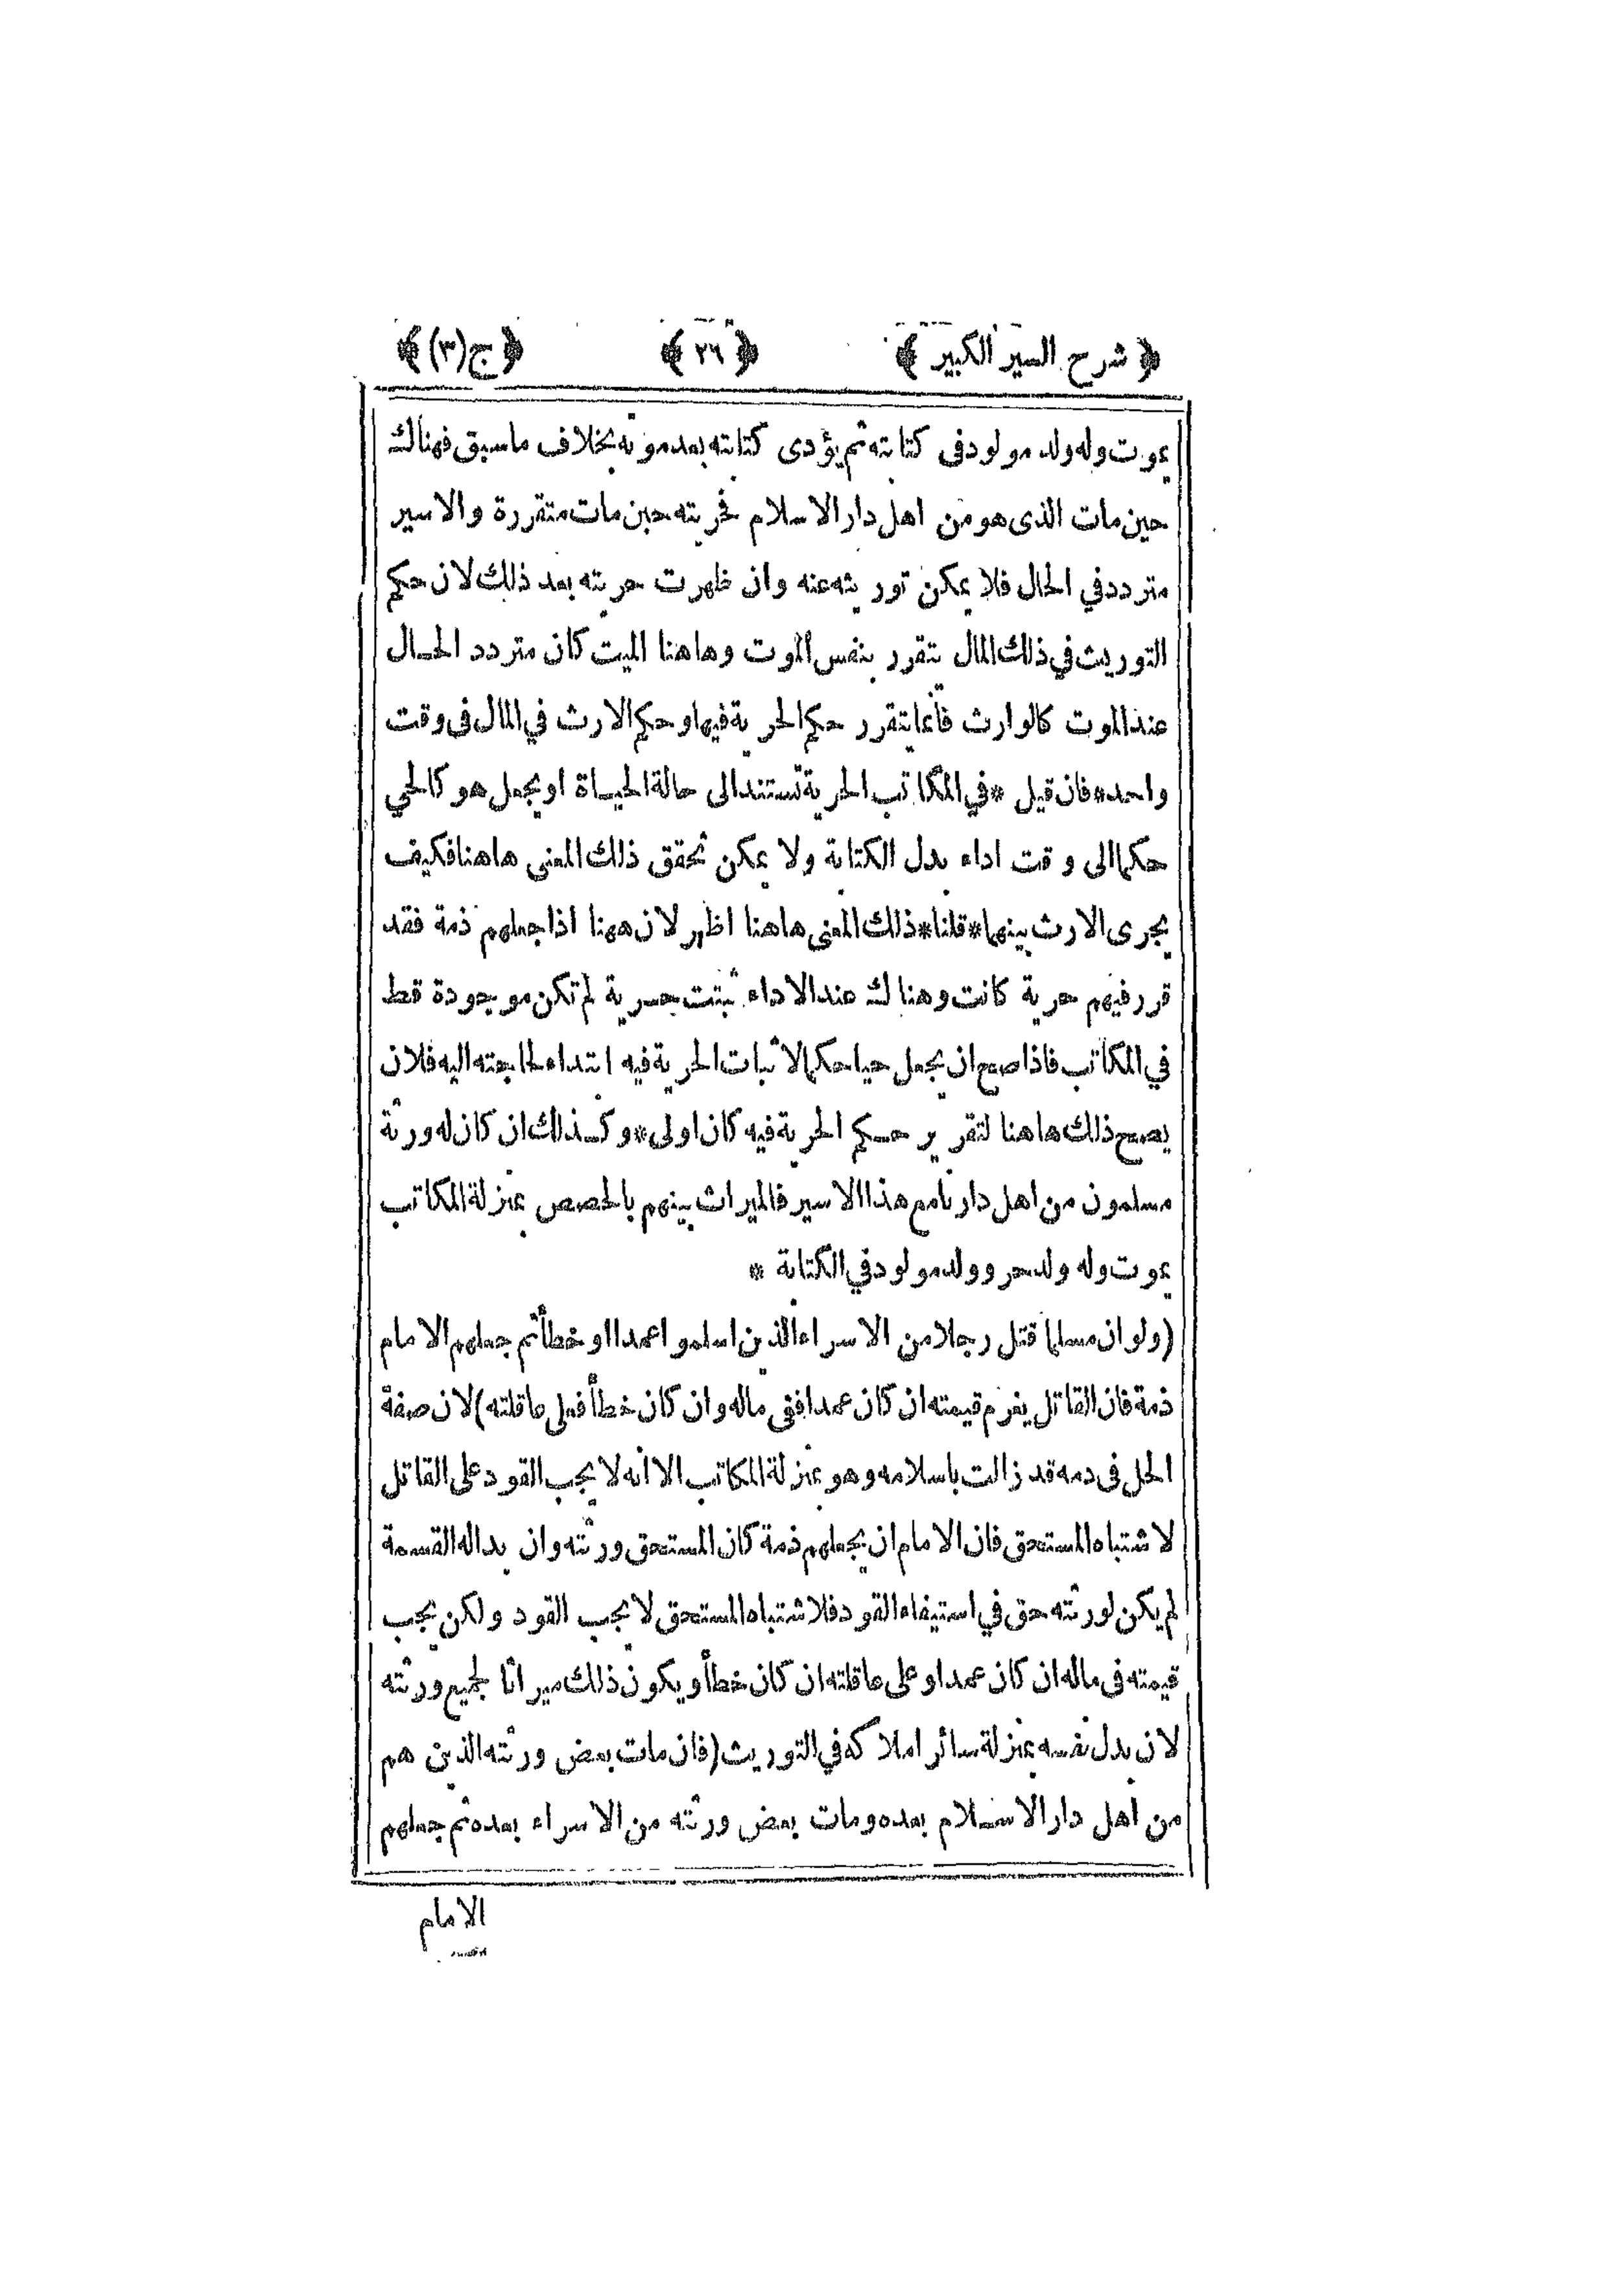 ﴿ شرح السير الكبير ﴾ ﴿ ٢٦ ﴾ ﴿ ج (٣) ﴾
يموت وله ولد مولود فى كتابته ثم يؤدى كتابته بعد موته بخلاف ما سبق فهناك
حين مات الذى هو من اهل دار الاسلام فحريته حين مات متقررة والاسير
متردد في الحال فلا يمكن توريثه عنه وان ظهرت حريته بعد ذلك لان حكم
التوريث في ذلك المال يتقرر بنفس الموت وهاهنا الميت كان متردد الحال
عند الموت كالوارث فانما يتقرر حكم الحرية فيها وحكم الارث في المال فى وقت
واحد * فان قيل * في المكاتب الحرية تستند الى حالة الحياة او يجعل هو كالحي
حكما الى وقت اداء بدل الكتابة ولا يمكن تحقق ذلك المعنى هاهنا فكيف
يجرى الارث بينهما * قلنا * ذلك المعنى هاهنا اظهر لان ههنا اذا جعلهم ذمة فقد
قرر فيهم حرية كانت وهناك عند الاداء ثبتت حرية لم تكن موجودة قط
في المكاتب فاذا صح ان يجعل حيا حكما لاثبات الحرية فيه ابتداء لحاجته اليه فلان
يصح ذلك هاهنا لتقرير حكم الحرية فيه كان اولى * وكذلك ان كان له ورثة
مسلمون من اهل دارنا مع هذا الاسير فالميراث بينهم بالحصص بمنزلة المكاتب
يموت وله ولد حر وولد مولود في الكتابة *
(ولو ان مسلما قتل رجلا من الاسراء الذين اسلموا عمدا او خطأ ثم جعلهم الامام
ذمة فان القاتل يغرم قيمته ان كان عمدا ففى ماله وان كان خطأ فعلى عاقلته) لان صفة
الحل فى دمه قد زالت باسلامه وهو بمنزلة المكاتب الا انه لا يجب القود على القاتل
لاشتباه المستحق فان الامام ان يجعلهم ذمة كان المستحق ورثته وان بدا له القسمة
لم يكن لورثته حق في استيفاء القود فلاشتباه المستحق لا يجب القود ولكن يجب
قيمته فى ماله ان كان عمدا او على عاقلته ان كان خطأ ويكون ذلك ميراثا لجميع ورثته
لان بدل نفسه بمنزلة سائر املاكه في التوريث (فان مات بعض ورثته الذين هم
من اهل دار الاسلام بعده ومات بعض ورثته من الاسراء بعده ثم جعلهم
الامام